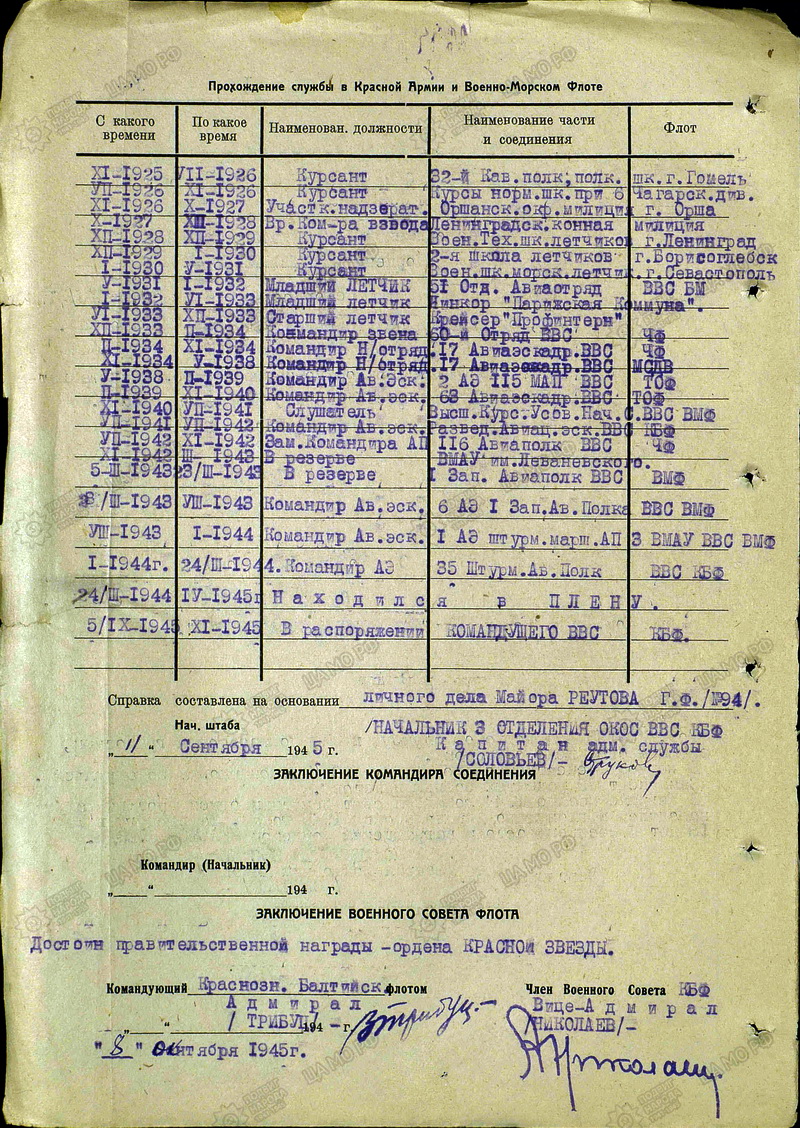 Прохождение службы в Красной Армии и Военно-Морском Флоте
С какого времени По какое время Наименован. должности Наименование части и соединения Флот
XI-1925 VII-1926 Курсант 32-й Кав.полк; полк. шк. г. Гомель
VП-1926 XI-1926 Курсант Курсы норм.шк.при 6 Чагарск.див.
XI-1926 X-1927 Участк.надзерат. Оршанск.окр.милиция г. Орша
X-1927 XП-1928 Вр.Ком-ра взвода Ленинградск.конная милиция
XП-1928 XП-1929 Курсант Воен.Тех.шк.летчиков г.Ленинград
XП-1929 I-1930 Курсант 2-я школа летчиков г.Борисоглебск
I-1930 У-1931 Курсант Воен.шк.морск.летчик. г.Севастополь
У-1931 I-1932 Младший ЛЕТЧИК 51 Отд. Авиаотряд ВВС БМ
I-1932 УI-1933 Младший летчик Линкор "Парижская Коммуна".
УI-1933 XП-1933 Старший летчик Крейсер "Профинтерн"
XП-1933 П-1934 Командир звена 60-й Отряд ВВС ЧФ
П-1934 XI-1934 Командир Н/отряд. 17 Авиаэскадр.ВВС ЧФ
XI-1934 У-1938 Командир Н/отряд. 17 Авиаэскадр.ВВС МСДВ
У-1938 П-1939 Командир Ав.Эск. 2 АЭ 115 МАП ВВС ТОФ
П-1939 XI-1940 Командир Ав.эск. 63 Авиаэскадр.ВВС ТОФ
XI-1940 УП-1941 Слушатель Высш.Курс.Усов.Нач.С.ВВС ВМФ
УП-1941 УП-1942 Командир Ав.эск. Развед.Авиац.эск.ВВС КБФ
УП-1942 XI-1942 Зам.Командира АП 116 Авиаполк ВВС ЧФ
XI-1942 Ш-1943 В резерве ВМАУ им.Леваневского.
5-Ш-1943 23/Ш-1943 В резерве I Зап. Авиаполк ВВС ВМФ
/Ш-1943 УШ-1943 Командир Ав.эск. 6 АЭ I Зап.Ав.Полка ВВС ВМФ
УШ-1943 I-1944 Командир Ав.эск. I АЭ штурм.марш.АП 3 ВМАУ ВВС ВМФ
I-1944г. 24/Ш-1944. Командир АЭ 35 Штурм.Ав.Полк ВВС КБФ
24/Ш-1944 IУ-1945г Находился в ПЛЕНУ.
5/IX-1945 XI-1945 В распоряжении КОМАНДУЩЕГО ВВС КБФ.
Справка составлена на основании личного дела Майора РЕУТОВА Г.Ф./№94/.
Нач. штаба /НАЧАЛЬНИК 3 ОТДЕЛЕНИЯ ОКОС ВВС КБФ
„11" Сентября 1945 г. Капитан адм. службы
/СОЛОВЬЕВ/-
ЗАКЛЮЧЕНИЕ КОМАНДИРА СОЕДИНЕНИЯ
Командир (Начальник)
„ " 194 г.
ЗАКЛЮЧЕНИЕ ВОЕННОГО СОВЕТА ФЛОТА
Достоин правительственной награды -ордена КРАСНОЙ ЗВЕЗДЫ.
Командующий Краснозн. Балтийск. флотом Член Военного Совета КБФ
Адмирал Вице-Адмирал
„ " /ТРИБУЦ/ 194 - г. /НИКОЛАЕВ/-
"8" октября 1945г.